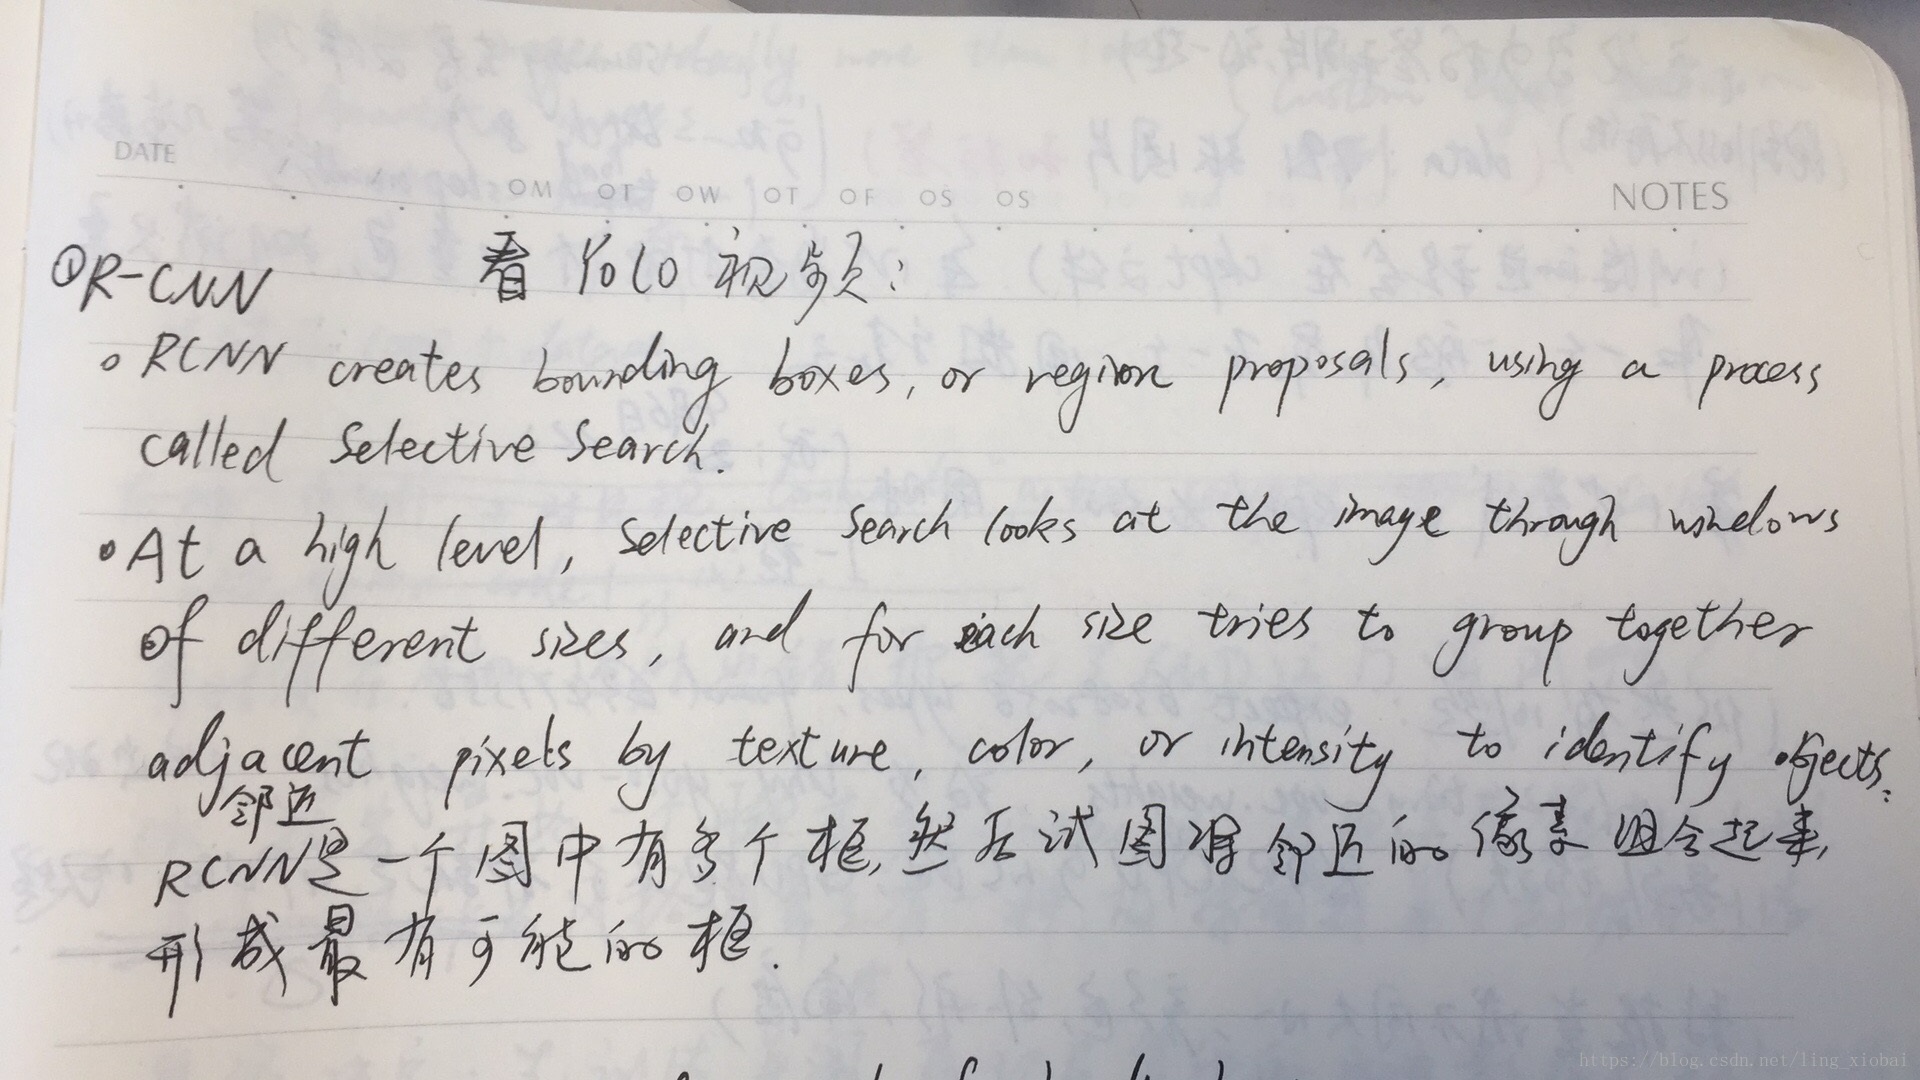 DATE
OM OT OW OT OF OS OS
NOTES
看 Yolo 视频:
①R-CNN
• RCNN creates bounding boxes, or region proposals, using a process
called Selective Search.
• At a high level, Selective Search looks at the image through windows
of different sizes, and for each size tries to group together
adjacent pixels by texture, color, or intensity to identify objects.
邻近
RCNN是一个图中有多个框,然后试图将邻近的像素组合起来,
形成最有可能的框.
https://blog.csdn.net/ling_xiobai